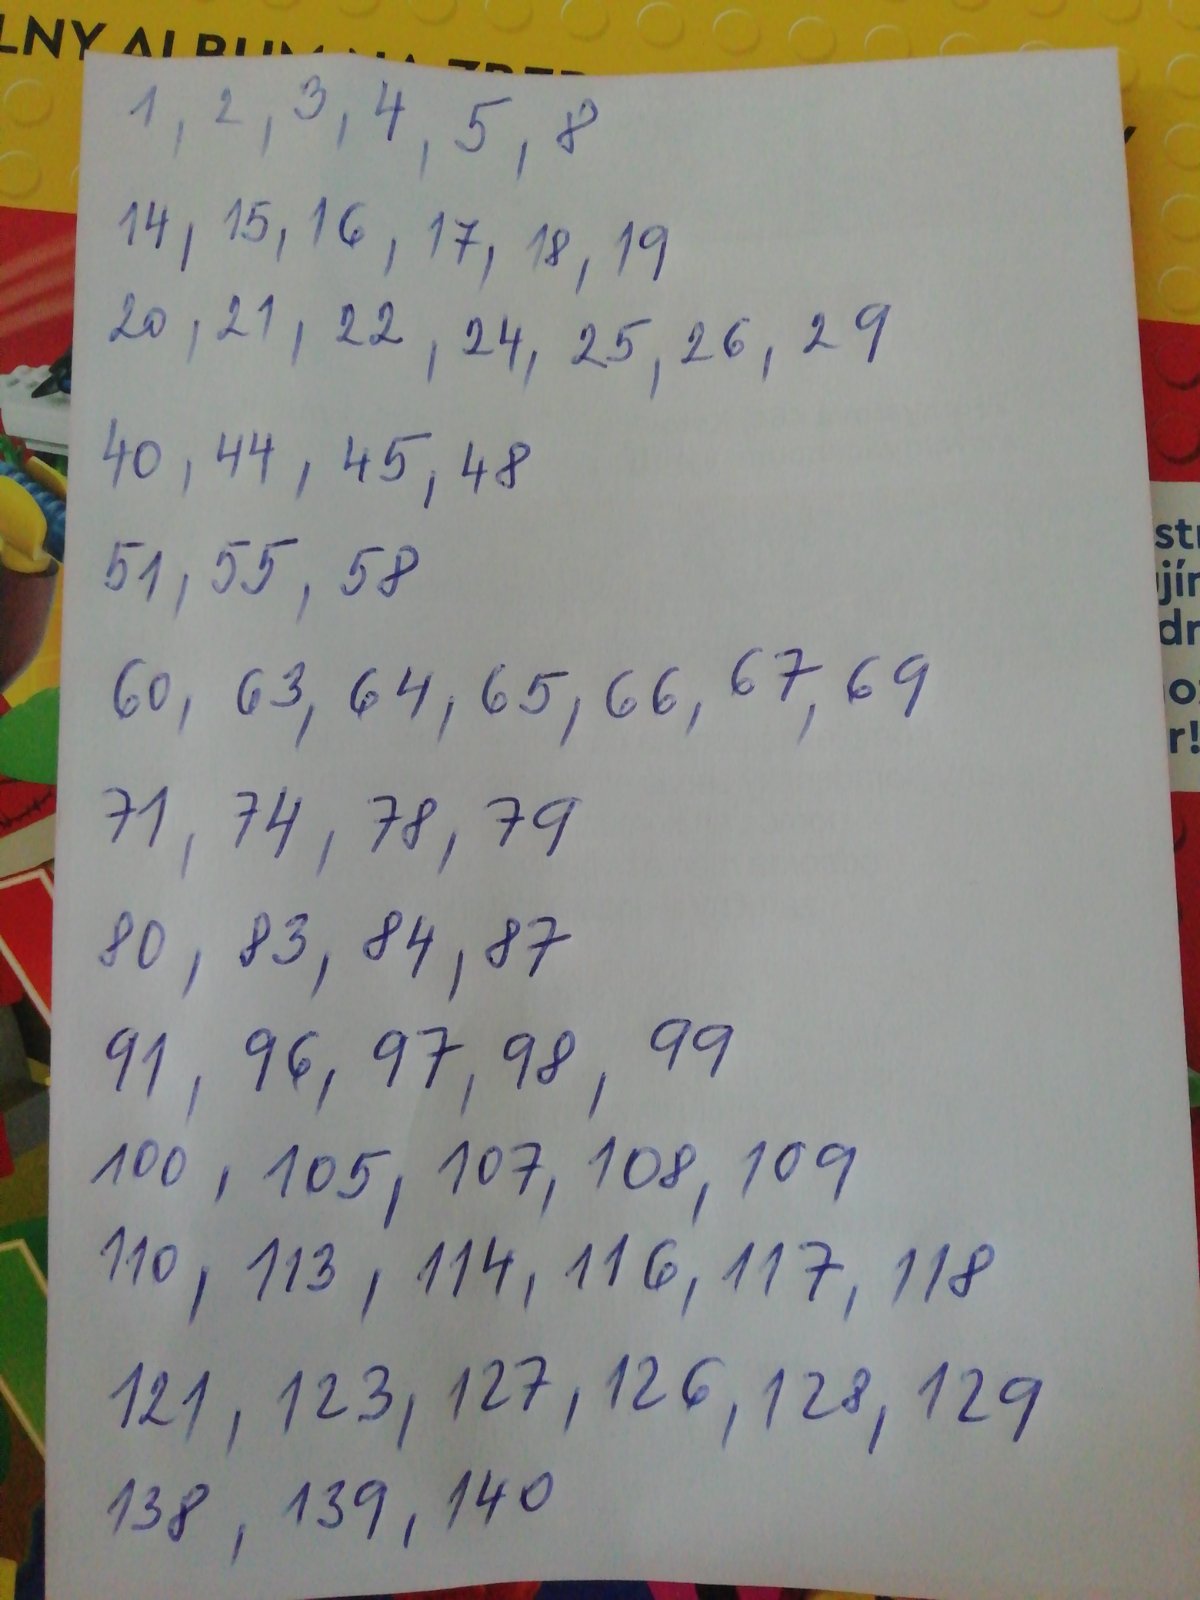 LNY ALBUM NA ZBER
1, 2, 3, 4, 5, 8
14, 15, 16, 17, 18, 19
20, 21, 22, 24, 25, 26, 29
40, 44, 45, 48
51, 55, 58
60, 63, 64, 65, 66, 67, 69
71, 74, 78, 79
80, 83, 84, 87
91, 96, 97, 98, 99
100, 105, 107, 108, 109
110, 113, 114, 116, 117, 118
121, 123, 127, 126, 128, 129
138, 139, 140
r!